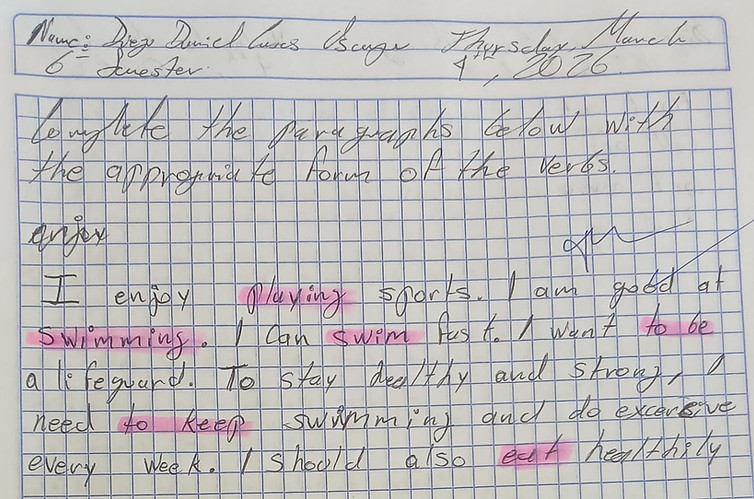 Name: Diego Daniel Osuga Thursday, March
6° Semester. 4th, 2026.
Complete the paragraphs below with
the appropriate form of the verbs.
enjoy
I enjoy playing sports. I am good at
swimming. I can swim fast. I want to be
a lifeguard. To stay healthy and strong, I
need to keep swimming and do excersive
every week. I should also eat healthily